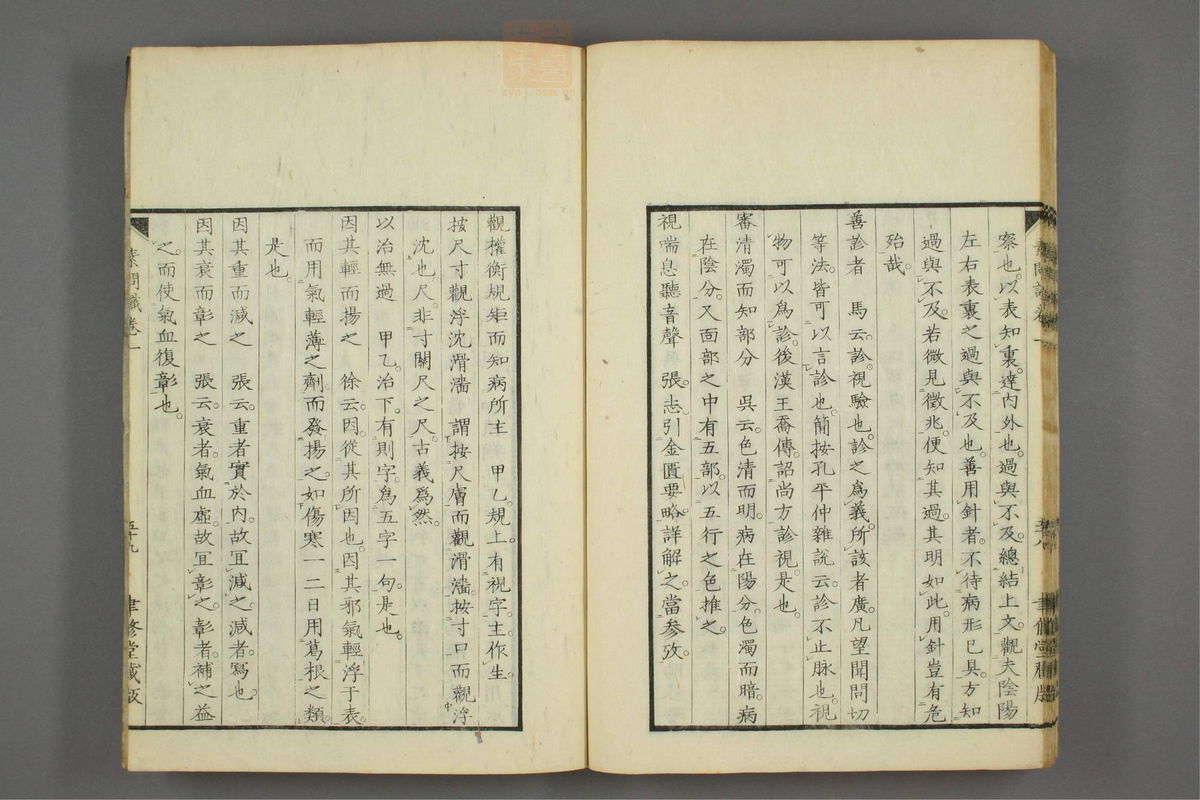 察也。以表知裏。達内外也。過與不及。總結上文。觀夫陰陽
左右表裏之過與不及也。善用針者。不待病形已具。方知
過與不及。若微見徵兆。便知其過。其明如此。用針豈有危
殆哉。
善診者　馬云。診。視驗也。診之爲義。所該者廣。凡望聞問切
等法。皆可以言診也。簡按孔平仲雜說云。診不止脉也。視
物可以爲診。後漢王喬傳。詔尚方診視。是也。
審清濁而知部分　吳云。色清而明。病在陽分。色濁而暗。病
在陰分。又面部之中有五部。以五行之色推之。
視喘息聽音聲　張。志。引金匱要略詳解之。當参攷。
五十八
觀權衡規矩而知病所主　甲乙。規上。有視字。主。作生。
按尺寸觀浮沈滑濇　謂按尺膚而觀滑濇。按寸口而觀浮
沈也。尺。非寸關尺之尺。古義爲然。
以治無過　甲乙。治下。有則字。爲五字一句。是也。
因其輕而揚之　徐云。因。從其所因也。因其邪氣輕浮于表。
而用氣輕薄之劑。而發揚之。如傷寒一二日用葛根之類。
是也。
因其重而減之　張云。重者實於内。故宜減之。減者。寫也。
因其衰而彰之　張云。衰者。氣血虛。故宜彰之。彰者。補之益
之。而使氣血復彰也。
素問識卷一
五十九
聿修堂藏版